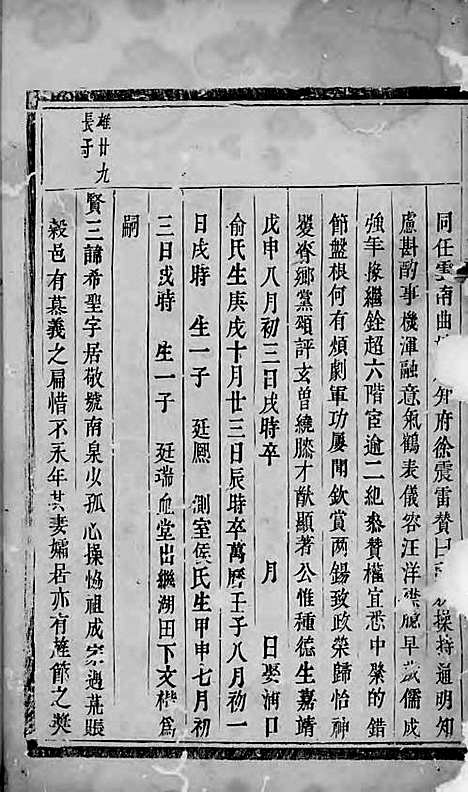 同任雲南曲知府徐震雷贊曰操持通明知
慮斟酌事機渾融意氣鶴表儀容汪洋襟度早歲儒成
強年掾繼銓超六階宦逾二紀叅贊權宜悉中槼的錯
節盤根何有煩劇軍功屢聞欽賞兩錫致政榮歸怡神
饗脊鄉黨頌評玄曾繞膝才猷顯著公惟種德生嘉靖
戊申八月初三日戌時卒 月 日娶河口
俞氏生庚戌十月廿三日辰時卒萬曆壬子八月初一
日戌時 生一子 廷熈 測室侯氏生甲申七月初
三日戌時 生一子 廷瑞血堂出繼湖田下文楷爲
嗣
雄廿九
長子
賢三諱希聖字居敬號南泉少孤心操恸祖成家遇荒賬
榖邑有慕義之扁惜不永年其妻孀居亦有旌節之奬